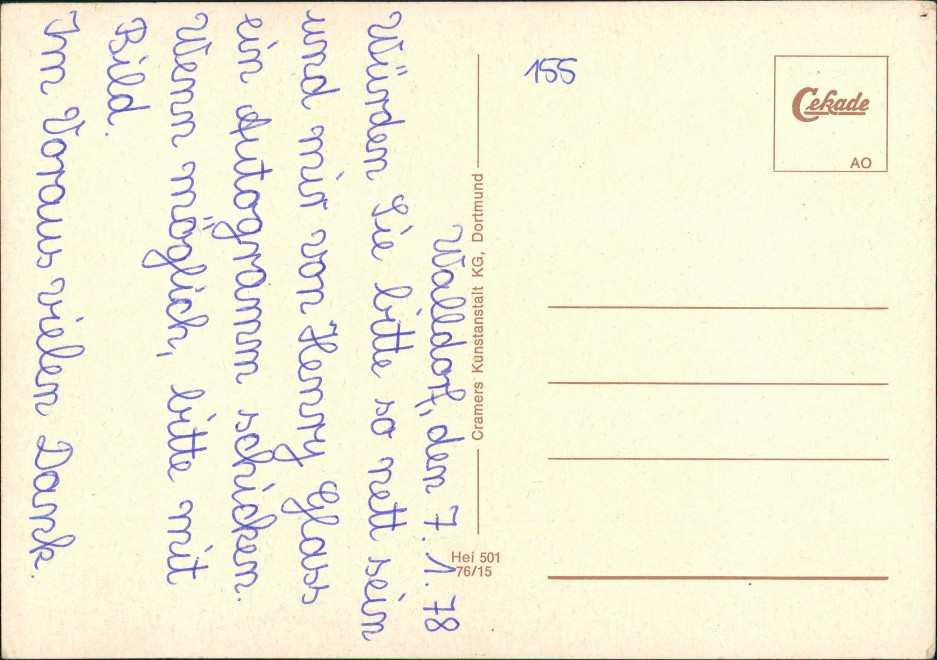 Walldorf, den 7.1.78
Würden Sie bitte so nett sein
und mir von Henry Glass
ein Autogramm schicken.
Wenn möglich, bitte mit
Bild.
Im Voraus vielen Dank.
Cramers Kunstanstalt KG, Dortmund
Hei 501
76/15
155
Cekade
AO